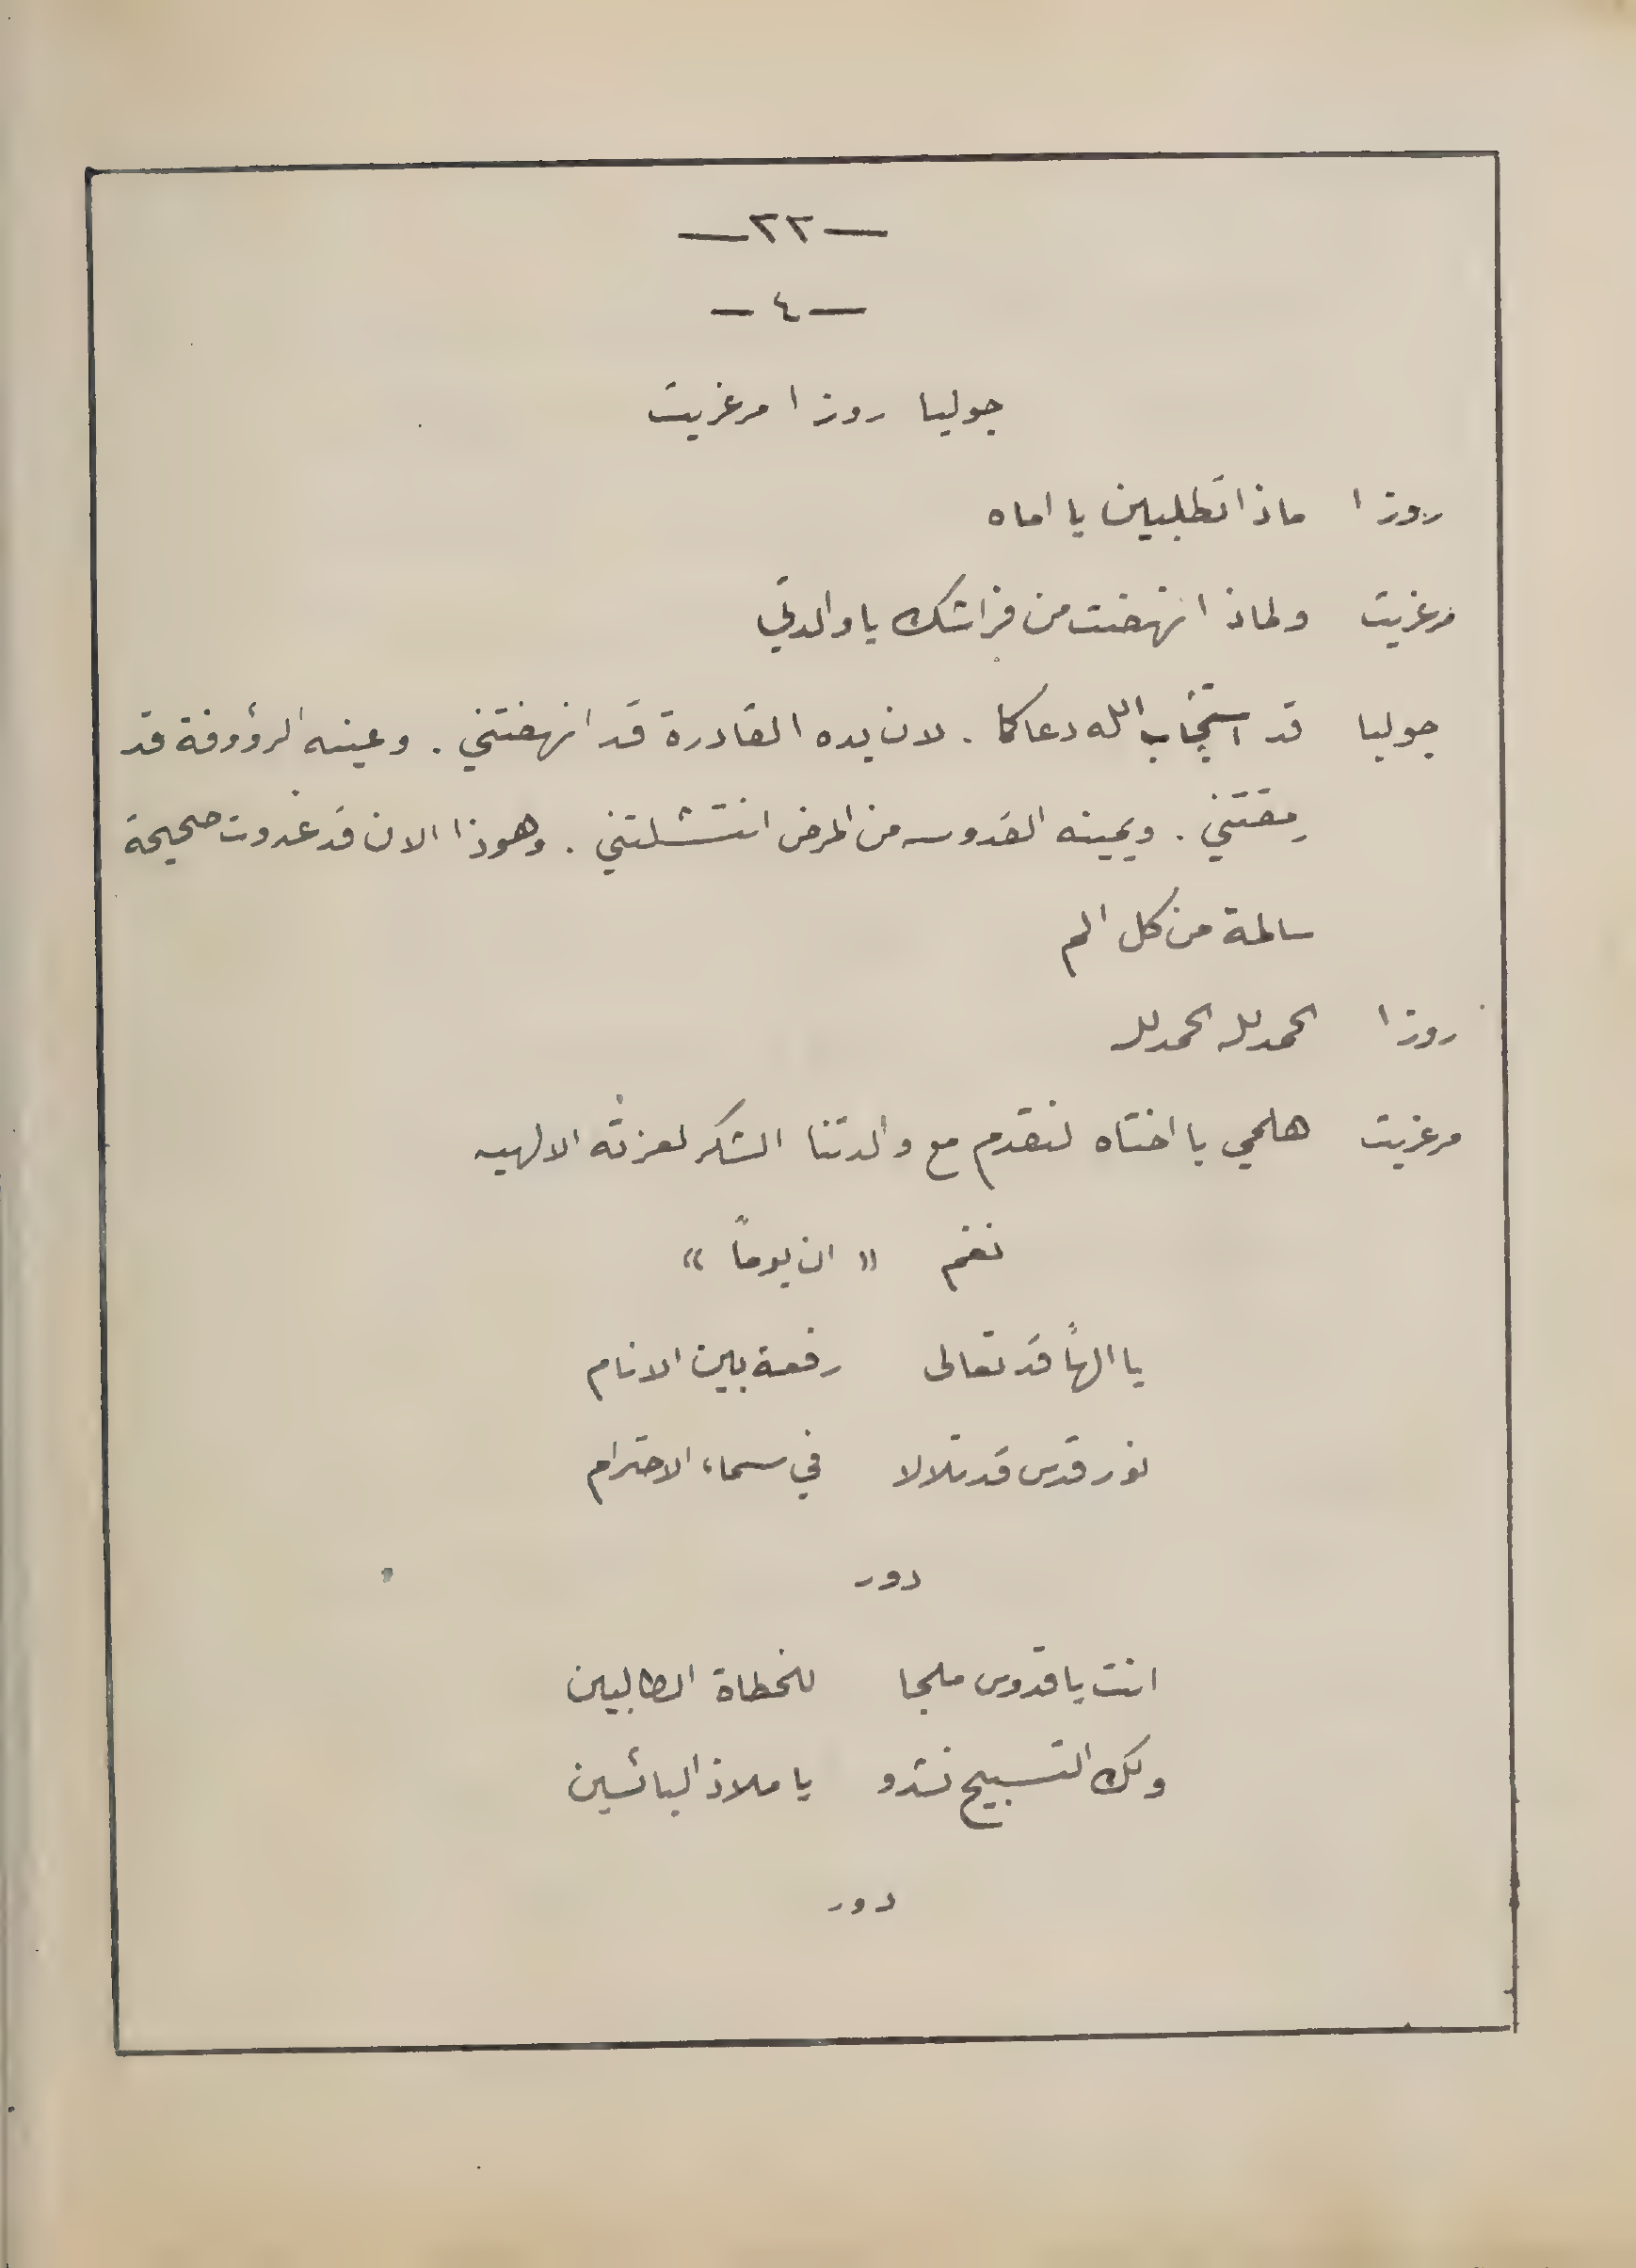 —٢٢—
—٤—
جوليا روزا مرغريت
روزا ماذا تطلبين يا اماه
مرغريت ولماذا نهضت من فراشك يا والدتي
جوليا قد استجاب الله دعاكا . لان يده القادرة قد انهضتني . وعينه الرؤوفة قد
رمقتني . ويمينه القدوسه من المرض انتشلتني . وهوذا الان قد غدوت صحيحة
سالمة من كل الم
روزا الحمدلله الحمدلله
مرغريت هلمي يا اختاه لنقدم مع والدتنا الشكر لعزته الالهيه
نغم « ان يوماً »
يا الهاً قد تعالى رفعة بين الانام
نور قدس قد تلالا في سماء الاحترام
دور
انت يا قدوس ملجا للخطاة الطالبين
ولك التسبيح نشدو يا ملاذ البائسين
دور